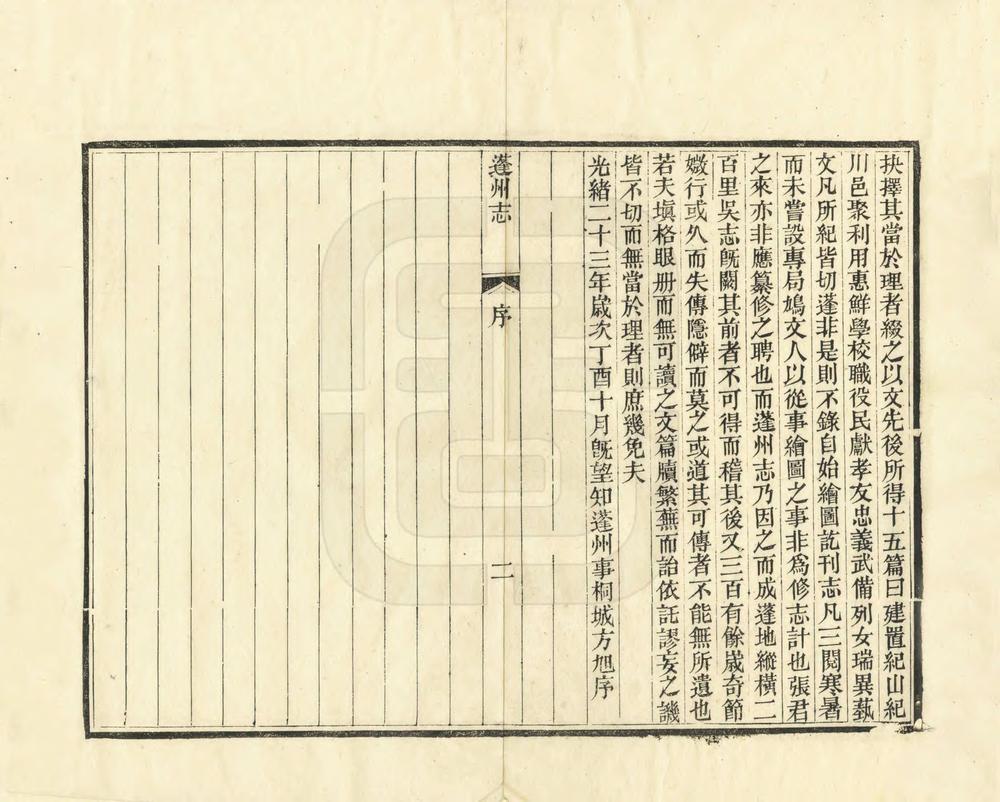 抉擇其當於理者綴之以文先後所得十五篇曰建置紀山紀
川邑聚利用惠鮮學校職役民獻孝友忠義武備列女瑞異藝
文凡所紀皆切蓬非是則不錄自始繪圖訖刊志凡三閱寒暑
而未嘗設專局鳩文人以從事繪圖之事非爲修志計也張君
之來亦非應纂修之聘也而蓬州志乃因之而成蓬地縱橫二
百里吳志旣闕其前者不可得而稽其後又三百有餘歲奇節
媺行或久而失傳隱僻而莫之或道其可傳者不能無所遺也
若夫塡格眼册而無可讀之文篇牘繁蕪而詒依託謬妄之譏
皆不切而無當於理者則庶幾免夫
光緒二十三年歲次丁酉十月旣望知蓬州事桐城方旭序
蓬州志
序
二